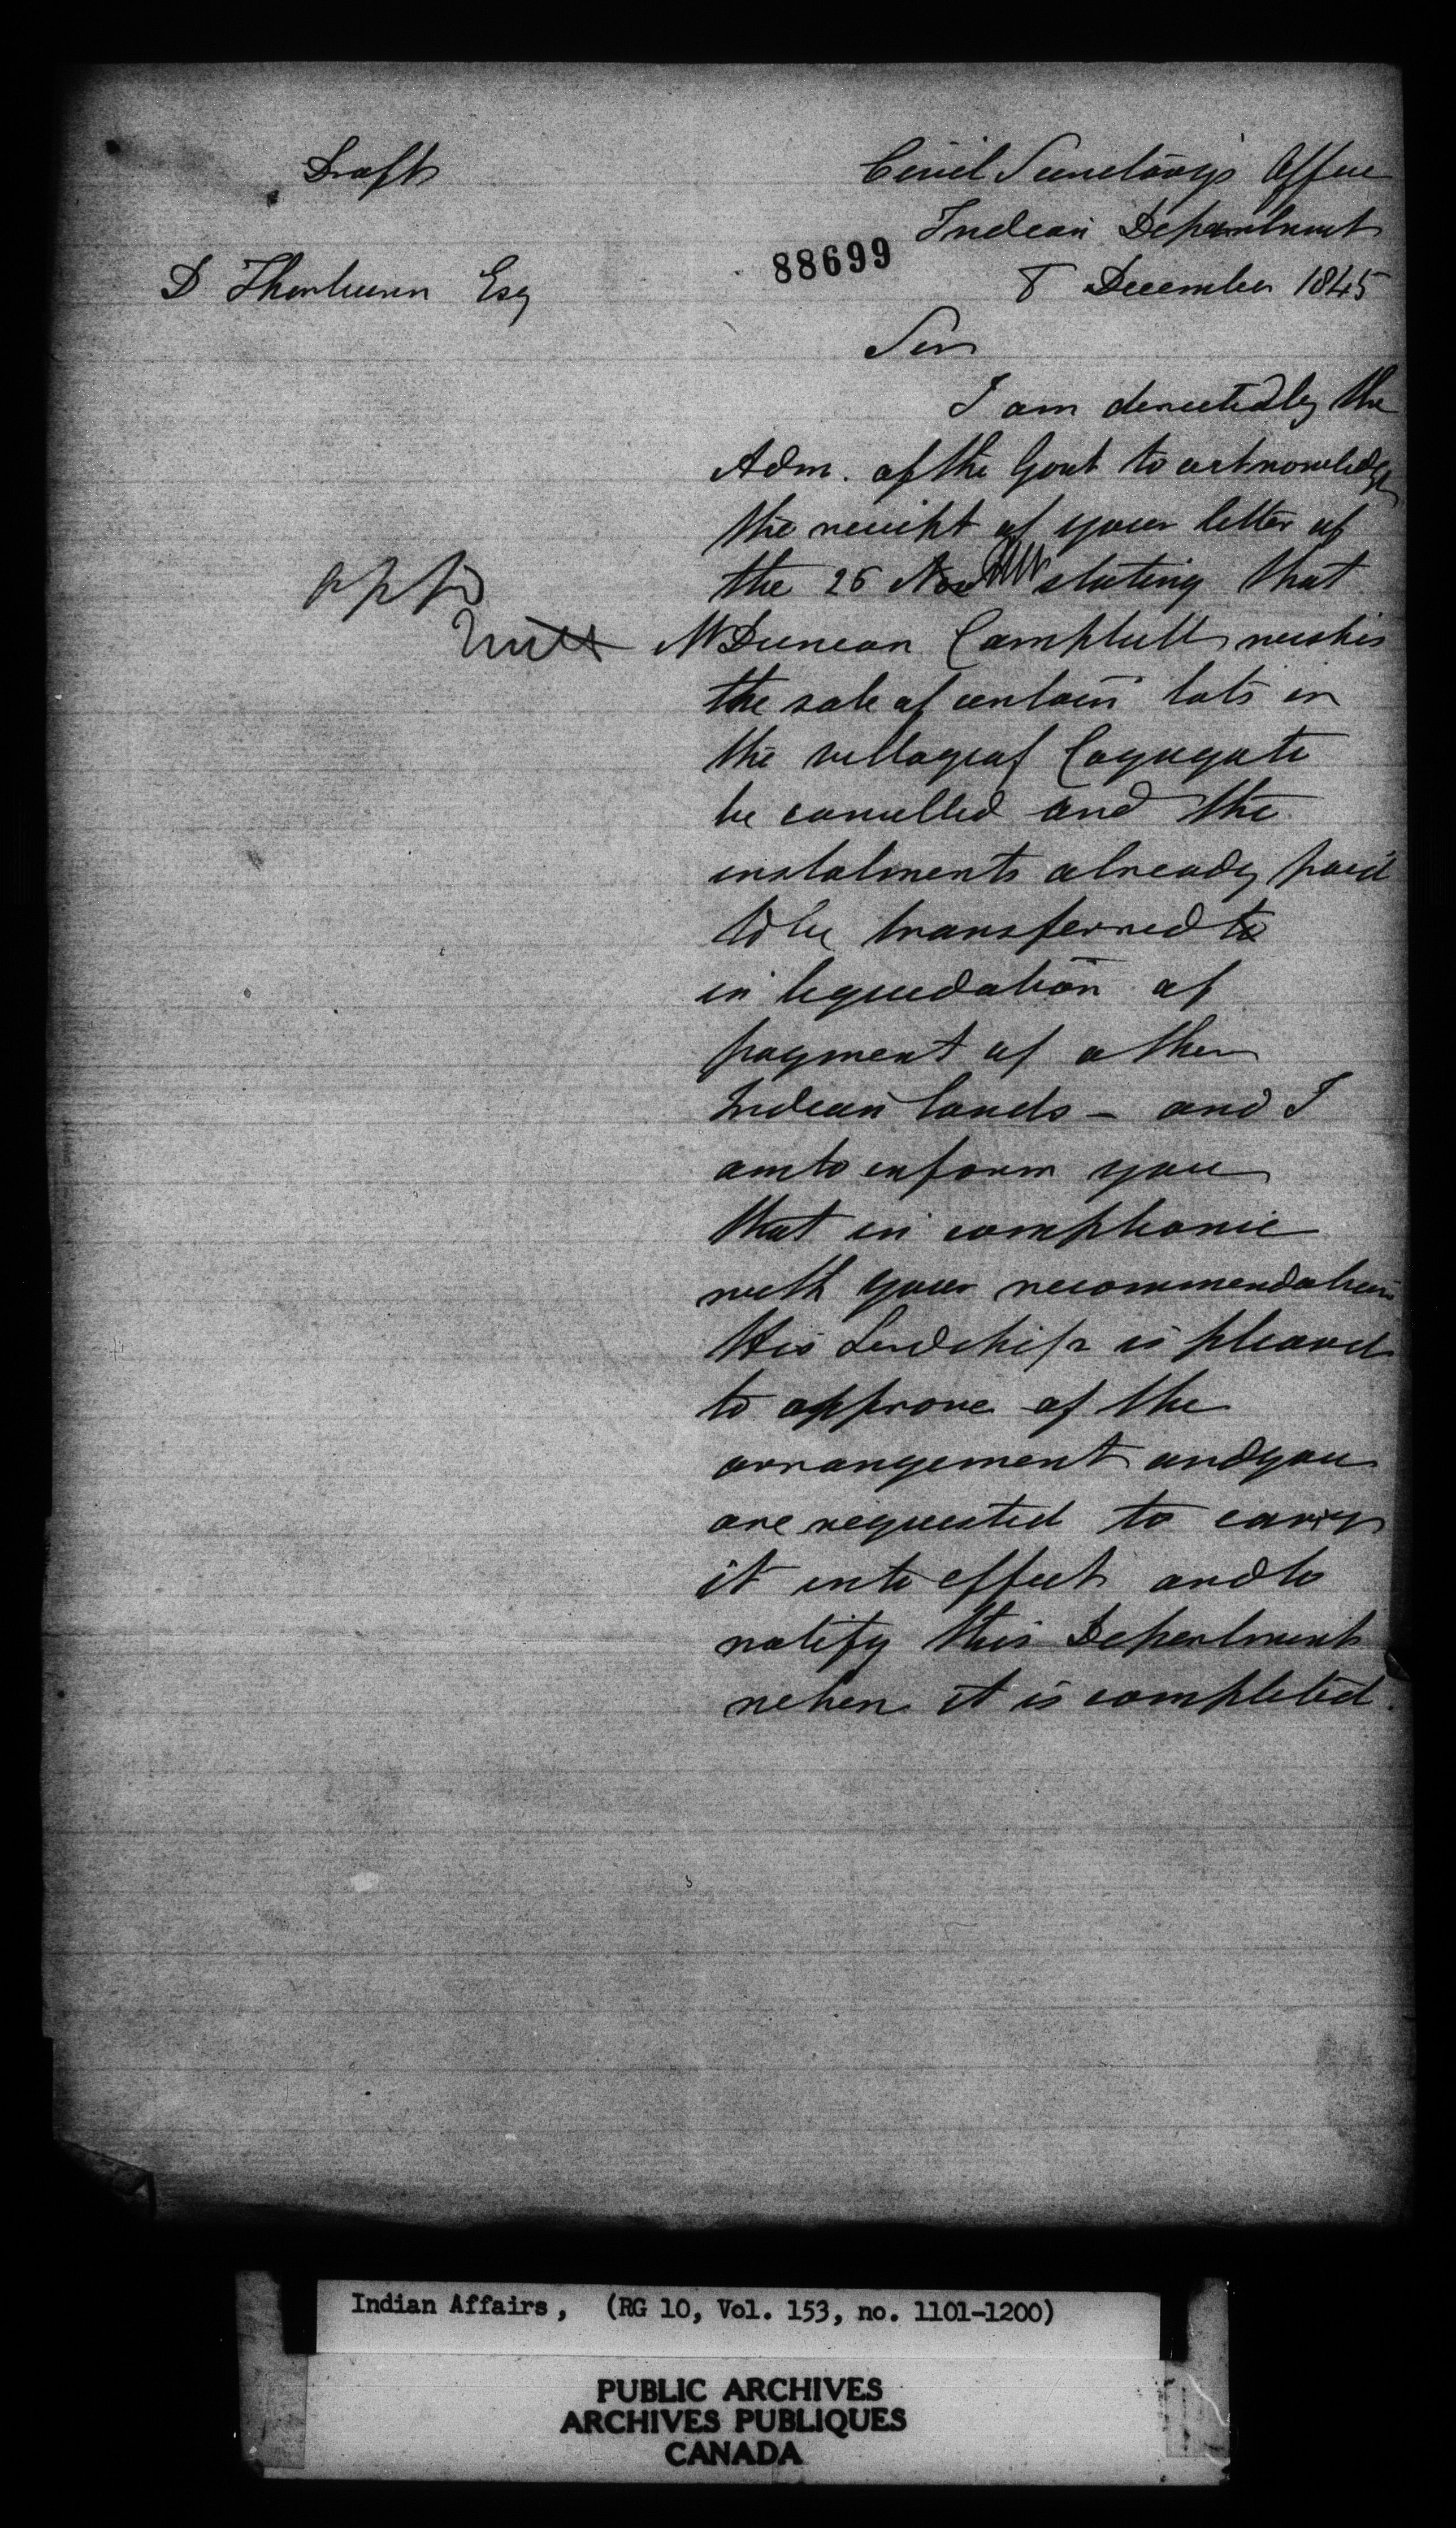 Draft
Civil Secretary's Office
Indian Department
88699
8 December 1845
D Thorburn Esq
Sir
I am directed by the
Adm. of the Govt to acknowledge
the receipt of your letter of
the 26 Nov stating that
Mr Duncan Campbell wishes
the sale of certain lots in
the village of Cayuga to
be cancelled and the
instalments already paid
to be transferred to
in liquidation of
payment of other
Indian lands – and I
am to inform you
that in compliance
with your recommendation
His Lordship is pleased
to approve of the
arrangement and you
are requested to carry
it into effect and to
notify this Department
when it is completed.
Indian Affairs, (RG 10, Vol. 153, no. 1101-1200)
PUBLIC ARCHIVES
ARCHIVES PUBLIQUES
CANADA